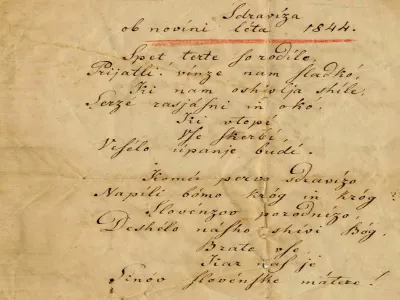 Sdravíza
ob novíni léta 1844.
Spet terte so rodíle,
Prijatli! vinze nam sladkó,
Ki nam oshivlja shile,
Serzé rasjásni in okó.
Ki vtopí
Vse skerbí,
Vesélo úpanje budí.
Komú pervo sdravízo
Napíli bómo króg in króg
Slovenzov porodnízo,
Deshélo násho shívi Bóg.
Brate vse
Kar nas je
Sinóv slovénske mátere!